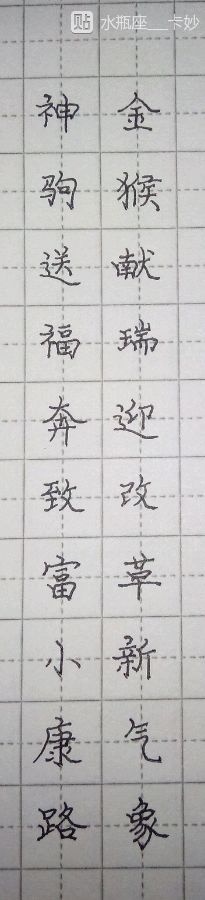 水瓶座__卡妙
金猴献瑞迎改革新气象
神驹送福奔致富小康路